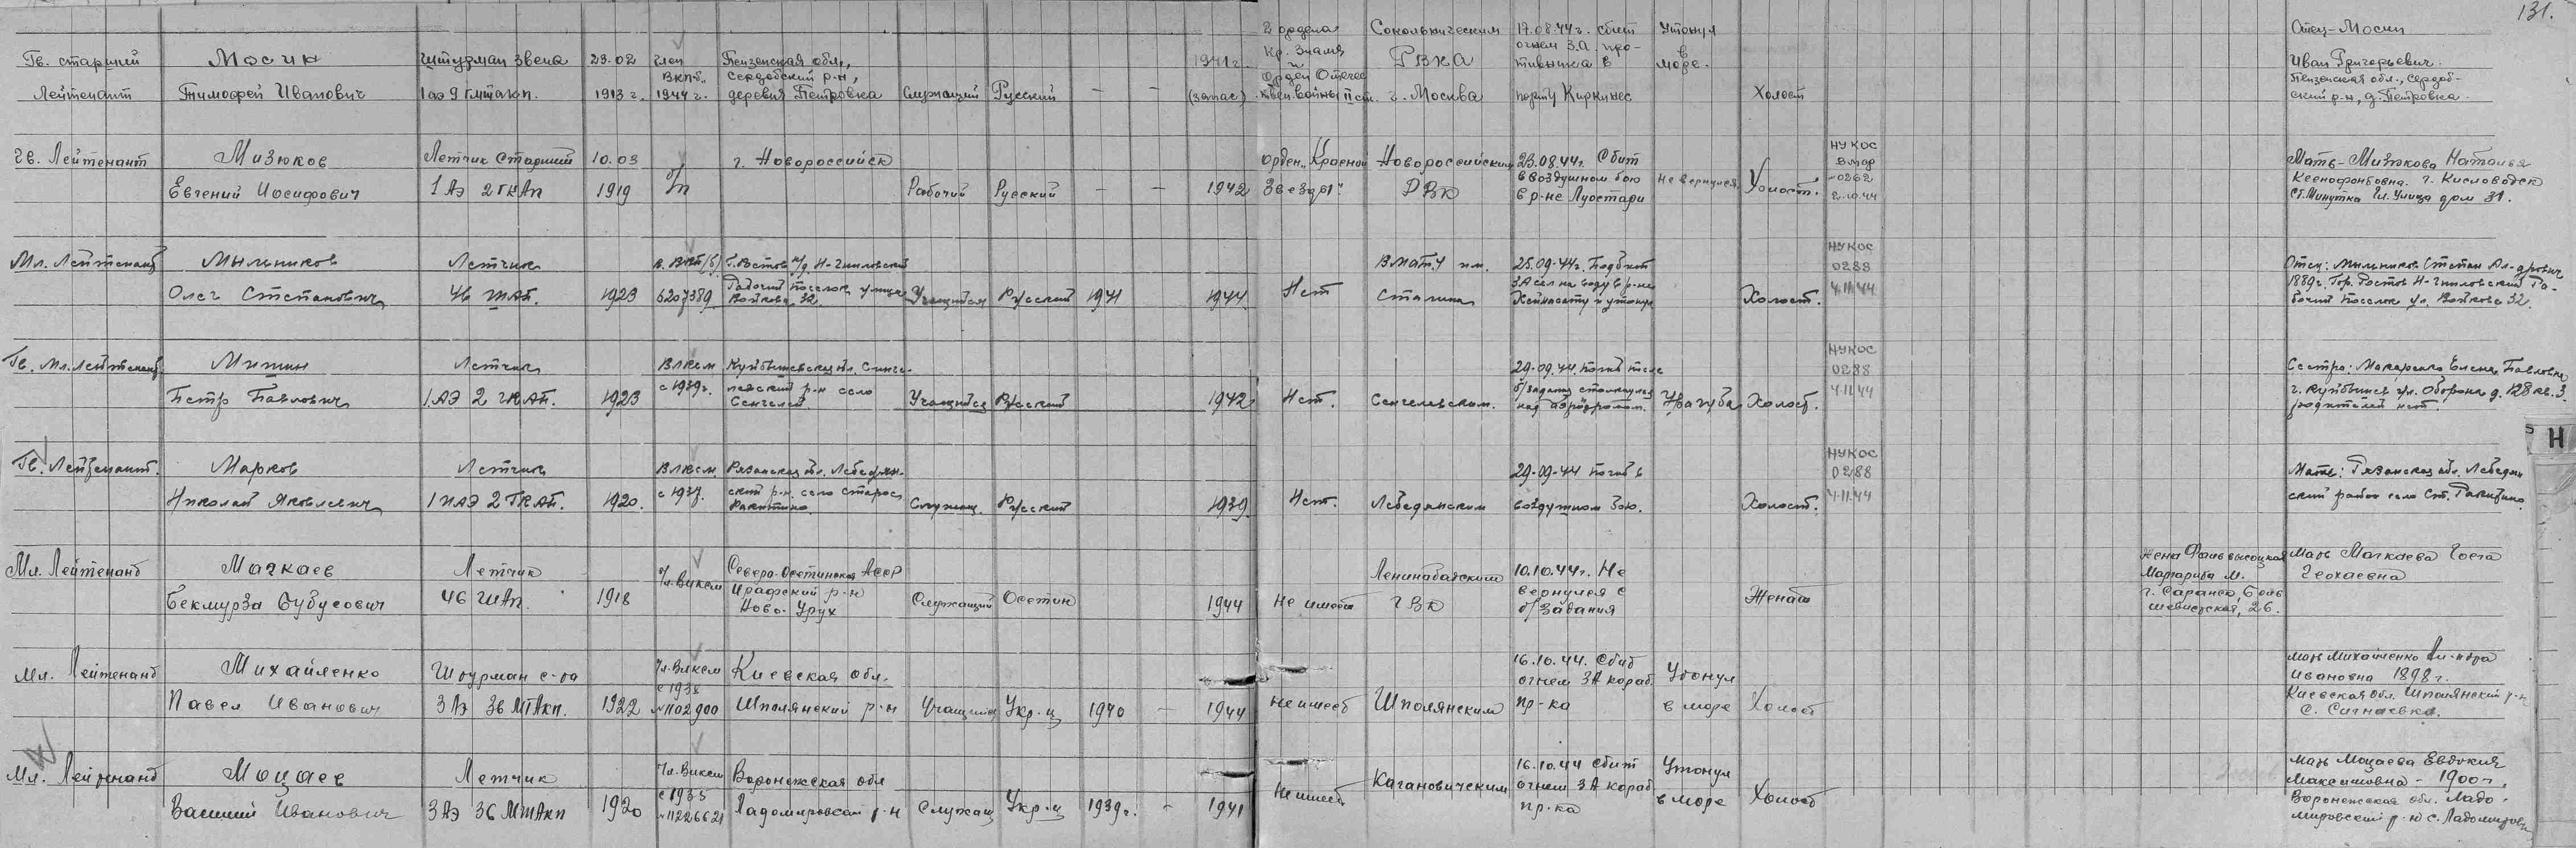 131.
Гв. старший Мосин штурман звена 23.02 член Пензенская обл., 1941г. 2 ордена Сокольническим 17.08.44г. сбит Утонул Отец-Мосин
Лейтенант Тимофей Иванович 1 аэ 9 гмтакп. 1913 г. ВКП-б. 1944 г. Сердобский р-н, деревня Петровка Служащий Русский — — (запас) Кр. Знамя и Орден Отечес РВКА г. Москва огнем ЗА про- тивника в порту Киркинес в море. Холост Иван Григорьевич.
Пензенская обл., Сердоб-
ский р-н, д. Петровка.
Гв. Лейтенант Мизюков Летчик Старший 10.03 б/п г. Новороссийск Орден „Красной Новороссийским 23.08.44г. Сбит НУКОС Мать-Мизюкова Наталья
Евгений Иосифович 1 Аэ 2 ГКАп 1919 Рабочий Русский — — 1942 Звезды". РВК в воздушном бою в р-не Луостари Не вернулся Холост. 0262 2.10.44 Ксенофонтовна. г. Кисловодск
ст. Минутка Гл. Улица дом 31.
Мл. Лейтенант Мыльников Летчик 25.09.44г. Подбит НУКОС Отец: Мыльников Степан Ал-дрович
Олег Степанович 46 ШАП. 1923 6207389 Рабочий поселок улица Войкова 32. Учащийся Русский 1941 1944 Нет Сталина ЗА сел на воду в р-не и утонул Холост. 0288 4.11.44 1889г. Гор. Ростов Н-Гниловский Ра-
бочий поселок ул. Войкова 32.
Гв. Мл. Лейтенант Митин Летчик ВЛКСМ 29.09.44. НУКОС Сестра: Макаренко Елена Павловна
Петр Павлович 1 АЭ 2 ГКАП. 1923 с 1939г. р-н село Сенгелей. Учащийся Русский 1942 Нет. Сенгелевским. б/задания столкнулся над аэродромом. Холост. 0288 4.11.44 г. Куйбышев ул. Обороны д. 128 кв. 3.
родителей нет.
Н
Гв. Лейтенант. Марков Летчик ВЛКСМ Рязанская обл. Лебедян- 29-09-44 погиб в НУКОС Мать: Рязанская обл. Лебедян
Николай Яковлевич 1 АЭ 2 ГКАП. 1920. с 1937. ский р-н. село Старое Ракитино. Служащ. Русский 1939. Нет. Лебедянским воздушном бою. Холост. 0288 4.11.44 ский район село Ст. Ракитино.
Мл. Лейтенант Мачкаев Летчик Северо-Осетинская АССР Ленинабадским 10.10.44г. Не Жена Маргарита М. Мать Мачкаева Госга
Бекмурза Бубусович 46 ШАп. 1918 Чл. ВЛКСМ Ирафский р-н Ново-Урух Служащий Осетин 1944 Не имеет ГВК вернулся с б/задания Женат г. Саранск, Боль шевистская, 26.
Мл. Лейтенант Михайленко Штурман с-та Чл. ВЛКСМ Киевская обл. 16.10.44. Сбит Утонул мать Михайленко Ал-ндра
Павел Иванович 3 Аэ 36 МТАкп. 1922 с 1938 №1102900 Шполянский р-н Учащийся Укр-ц 1940 — 1944 Не имеет Шполянским огнем ЗА кораб. пр-ка в море Холост Ивановна 1898 г.
Киевская обл. Шполянский р-н
с. Сигнаевка.
Мл. Лейтенант Моцаев Летчик Чл. ВЛКСМ Воронежская обл 16.10.44 Сбит Утонул Мать Моцаева Евдокия
Василий Иванович 3 Аэ 36 МТАкп 1920 с 1935 №11226621 Ладомировской р-н Служащ Укр-ц 1939г. — 1941 Не имеет Кагановическим огнем ЗА кораб пр-ка в море Холост Максимовна - 1900 г,
Воронежская обл. Ладо-
мировский р-н с. Ладомирово